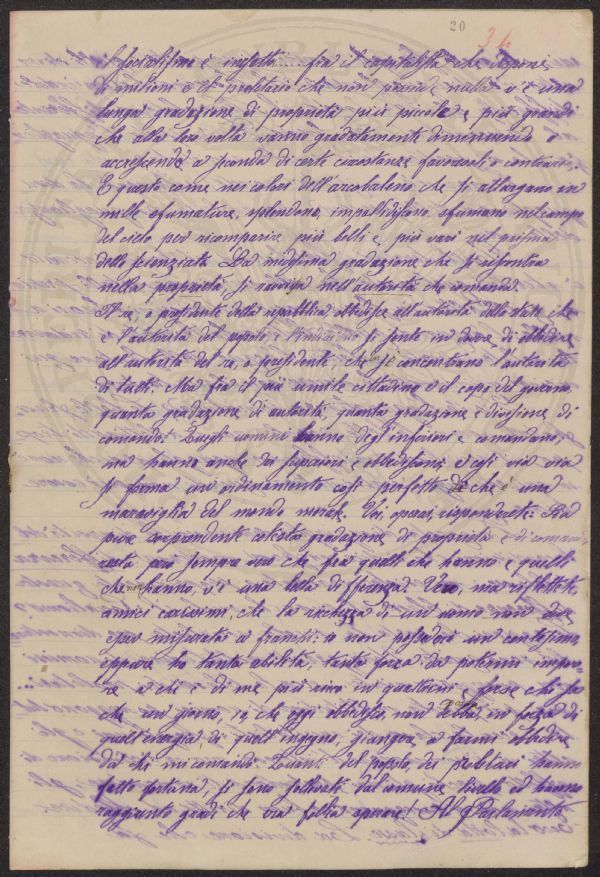 20
il socialismo è infatti.... fra il capitalista che dispone
di milioni e il proletario che non possiede nulla v'è una
lunga gradazione di proprietà più piccole e più grandi
che alla loro volta vanno gradatamente diminuendo o
accrescendo a seconda di certe circostanze favorevoli o contrarie.
E questo come nei colori dell'arcobaleno che si allargano in
mille sfumature, splendono, impallidiscono, sfumano nel campo
del cielo per ricomparire più belli e più vari nel prisma
dello scienziato. La medesima gradazione che si riscontra
nella proprietà, si ravvisa nell'autorità che comanda.
Il re, o presidente della repubblica obbedisce all'autorità dello stato che
è l'autorità del popolo e l'individuo si sente in dovere di obbedire
all'autorità del re, o presidente, che si concentrano l'autorità
di tutti. Ma fra il più umile cittadino e il capo del governo
quanta gradazione di autorità, quanta gradazione e divisione di
comando! Quegli uomini hanno degl'inferiori e comandano,
ma hanno anche dei superiori e obbediscono; e così via via
si forma un ordinamento così perfetto che è una
maraviglia del mondo morale. Voi, operai, risponderete: Sia
pure sorprendente cotesta gradazione di proprietà e di comando,
resta però sempre vero che fra quelli che hanno e quelli
che non hanno, v'è una bella differenza. Vero, ma riflettete
amici carissimi, che la ricchezza di un uomo non deve
esser misurata a franchi: io non possederò un centesimo
eppure ho tanta abilità, tanta forza da potermi impor-
re a chi è di me più ricco in quattrini e forse chi sa
che un giorno, io, che oggi obbedisco, non debba, in forza di
quell'energia di quell'ingegno, giungere a farmi obbedire
da chi mi comanda. Quanti del popolo, dei proletari hanno
fatto fortuna, si sono sollevati dal comune livello ed hanno
raggiunto gradi che era follia sperare! Al Parlamento